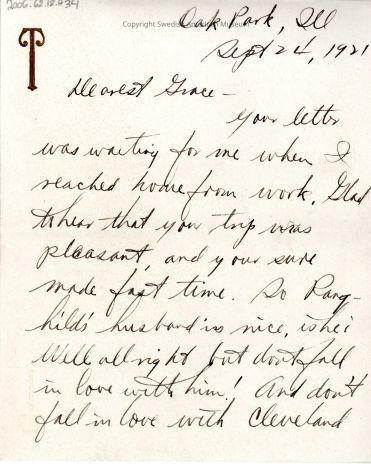 2006.62.12.#34
Copyright Swedish American Museum
Oak Park, Ill
Sept 24, 1921
T
Dearest Grace –
Your letter
was waiting for me when I
reached home from work. Glad
to hear that your trip was
pleasant, and your sure
made fast time. So Rang-
hild's husband is nice, is he?
Well allright but don't fall
in love with him! And don't
fall in love with Cleveland